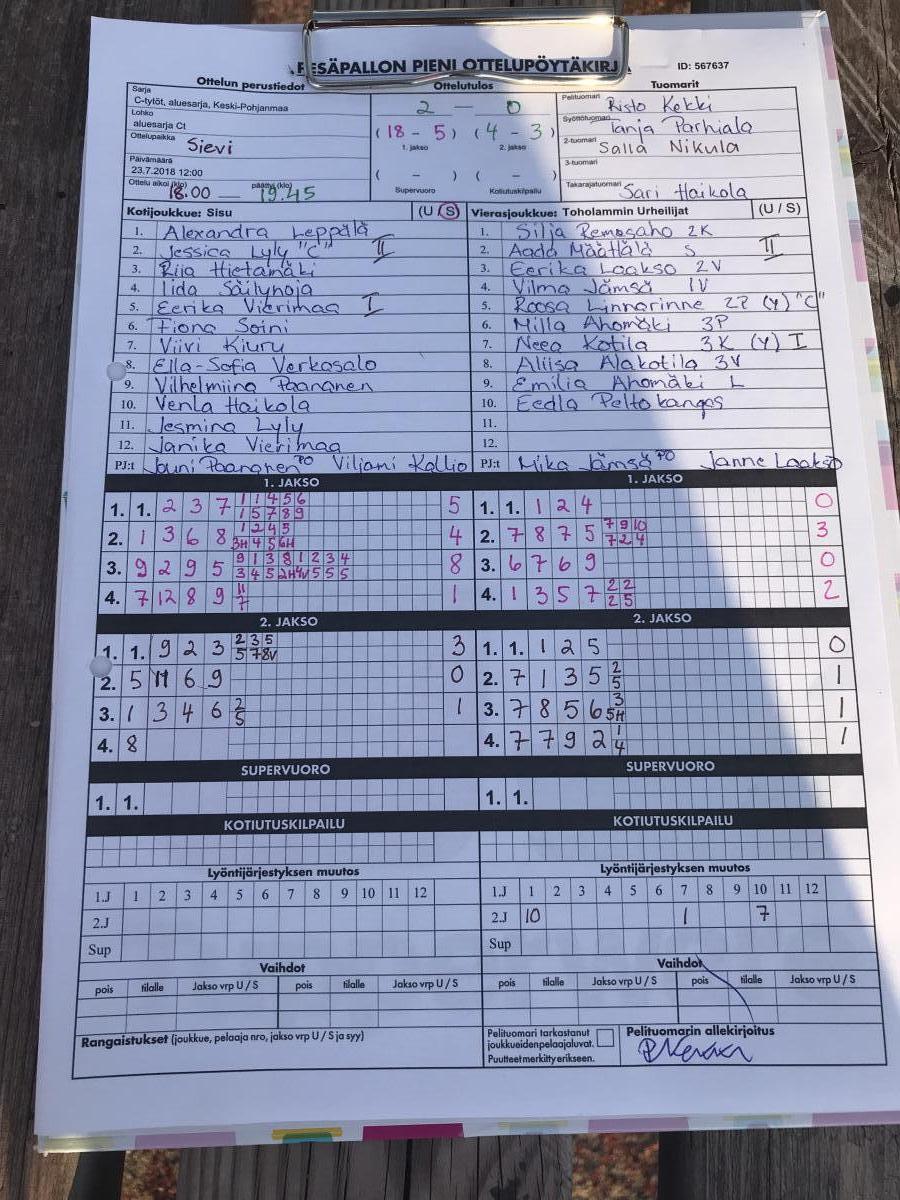 PESÄPALLON PIENI OTTELUPÖYTÄKIRJ
ID: 567637
Ottelun perustiedot
Sarja
C-tytöt, aluesarja, Keski-Pohjanmaa
Lohko
aluesarja Ct
Ottelupaikka Sievi
Päivämäärä
23.7.2018 12:00
Ottelu alkoi (klo) 18.00 — päättyi (klo) 19.45
Ottelutulos
2 — 0
(18 - 5) (4 - 3)
1. jakso 2. jakso
( - ) ( - )
Supervuoro Kotiutuskilpailu
Tuomarit
Pelituomari Risto Kekki
Syöttötuomari Tanja Parhiala
2-tuomari Salla Nikula
3-tuomari
Takarajatuomari Sari Haikola
Kotijoukkue: Sisu (U / S)
1. Alexandra Leppälä
2. Jessica Lyly "C" II
3. Riia Hietamäki
4. Iida Säilynoja
5. Eerika Vierimaa I
6. Fiona Soini
7. Viivi Kiuru
8. Ella-Sofia Verkasalo
9. Vilhelmiina Paananen
10. Venla Haikola
11. Jesmina Lyly
12. Janika Vierimaa
PJ:t Jouni Paananen PO Viljami Kallio
Vierasjoukkue: Toholammin Urheilijat (U / S)
1. Silja Remosaho 2K
2. Aada Määttälä S II
3. Eerika Laakso 2V
4. Vilma Jämsä 1V
5. Roosa Linnarinne 2P (Y) "C"
6. Milla Ahomäki 3P
7. Neea Kotila 3K (Y) I
8. Aliisa Alakotila 3V
9. Emilia Ahomäki L
10. Eedla Peltokangas
11.
12.
PJ:t Mika Jämsä PO Janne Laakso
1. JAKSO
1. 1. 2 3 7 1 1 4 5 6 5
1 5 7 8 9
2. 1 3 6 8 1 2 4 5 4
3H 4 5 6H
3. 9 2 9 5 9 1 3 8 1 2 3 4 8
3 4 5 2H 4V 5 5 5
4. 7 12 8 9 11 1
7
1. JAKSO
1. 1. 1 2 4 0
2. 7 8 7 5 7 9 10 3
7 2 4
3. 6 7 6 9 0
4. 1 3 5 7 2 2 2
2 5
2. JAKSO
1. 1. 9 2 3 2 3 5 3
5 7 8V
2. 5 11 6 9 0
3. 1 3 4 6 2 1
5
4. 8
2. JAKSO
1. 1. 1 2 5 0
2. 7 1 3 5 2 1
5
3. 7 8 5 6 3 1
5H
4. 7 7 9 2 1 1
4
SUPERVUORO
1. 1.
SUPERVUORO
1. 1.
KOTIUTUSKILPAILU
KOTIUTUSKILPAILU
Lyöntijärjestyksen muutos
1.J 1 2 3 4 5 6 7 8 9 10 11 12
2.J
Sup
Lyöntijärjestyksen muutos
1.J 1 2 3 4 5 6 7 8 9 10 11 12
2.J 10 1 7
Sup
Vaihdot
pois tilalle Jakso vrp U / S pois tilalle Jakso vrp U / S
Vaihdot
pois tilalle Jakso vrp U / S pois tilalle Jakso vrp U / S
Rangaistukset (joukkue, pelaaja nro, jakso vrp U / S ja syy)
Pelituomari tarkastanut
joukkueidenpelaajaluvat.
Puutteet merkitty erikseen.
Pelituomarin allekirjoitus